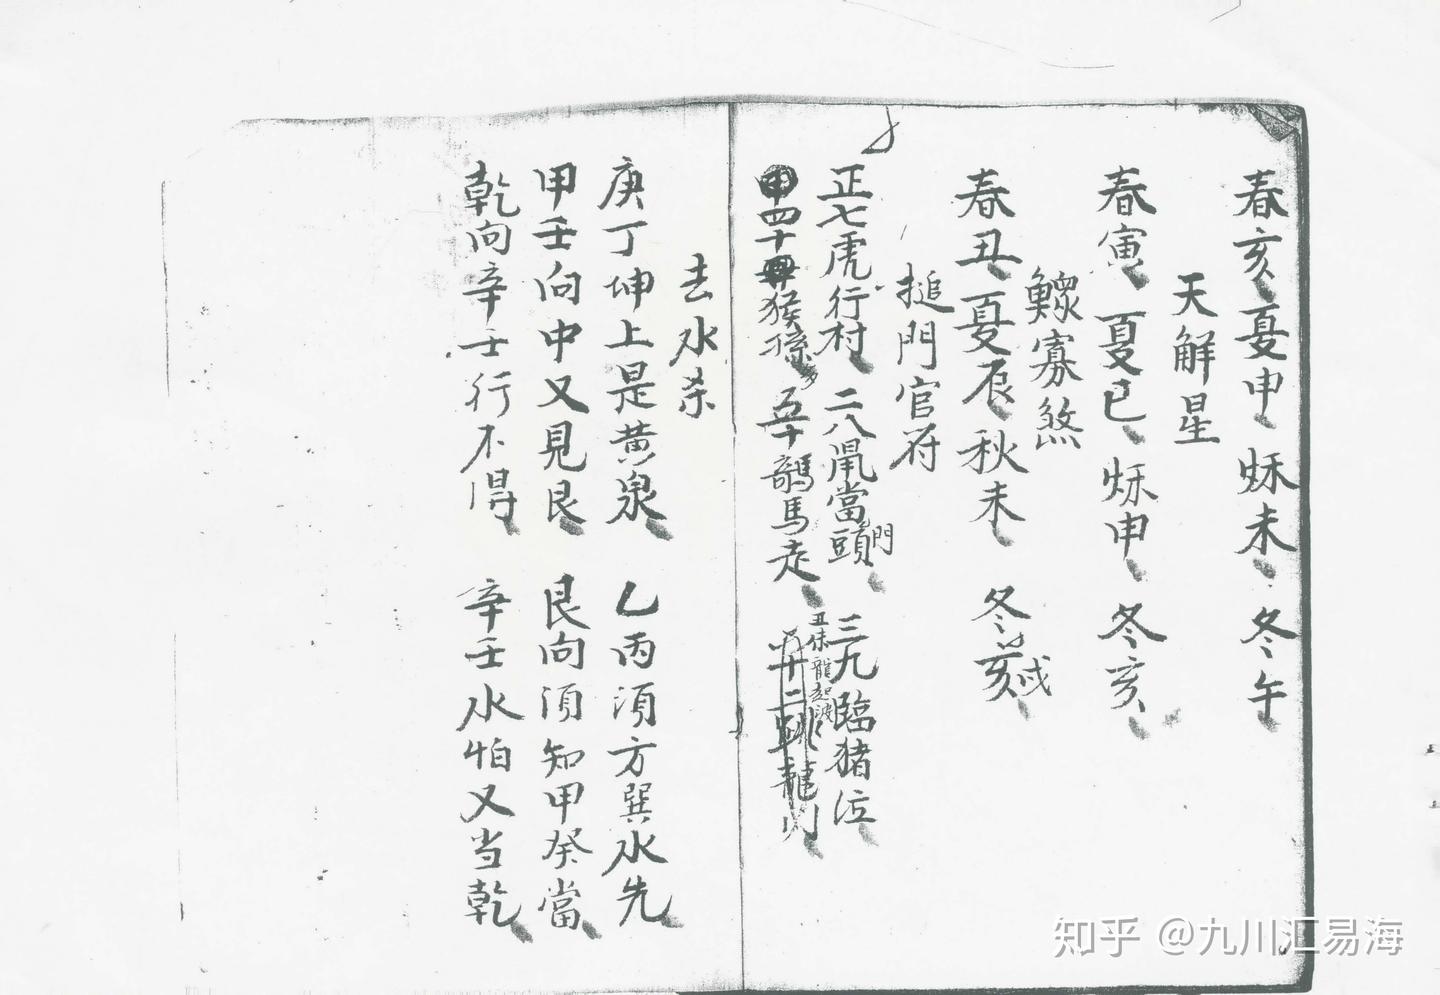 春亥夏申 秌未 冬午
天解星
春寅 夏巳 秌申 冬亥
鰥寡煞
春丑 夏辰 秋未 冬亥戌
搥門官符
正七虎行村 二八鼡當頭門 三九臨猪位
四十猴孫 五十 馬走 十二 龍
丑未龍起波
去水杀
庚丁坤上是黄泉 乙丙須方巽水先
甲壬向中又見艮 艮向須知甲癸當
乾向辛壬行不得 辛壬水怕又当乾
知乎 @九川汇易海